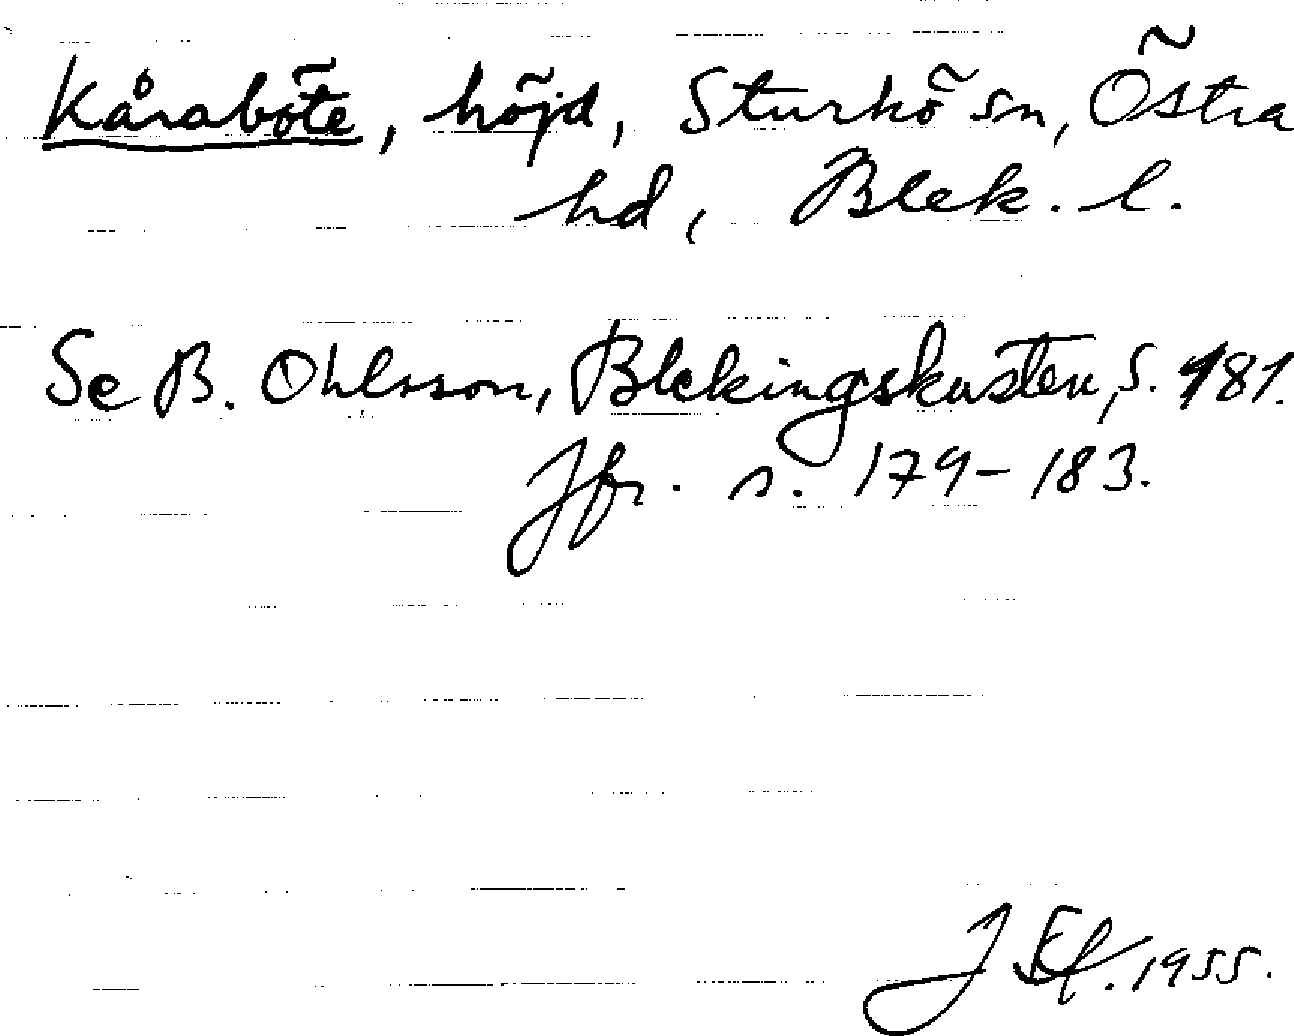 Kåraböte, höjd, Sturkö sn, Östra
hd, Blek. l.
Se B. Ohlsson, Blekingskusten, s. 181.
Jfr. s. 179-183.
J Ef. 1955.